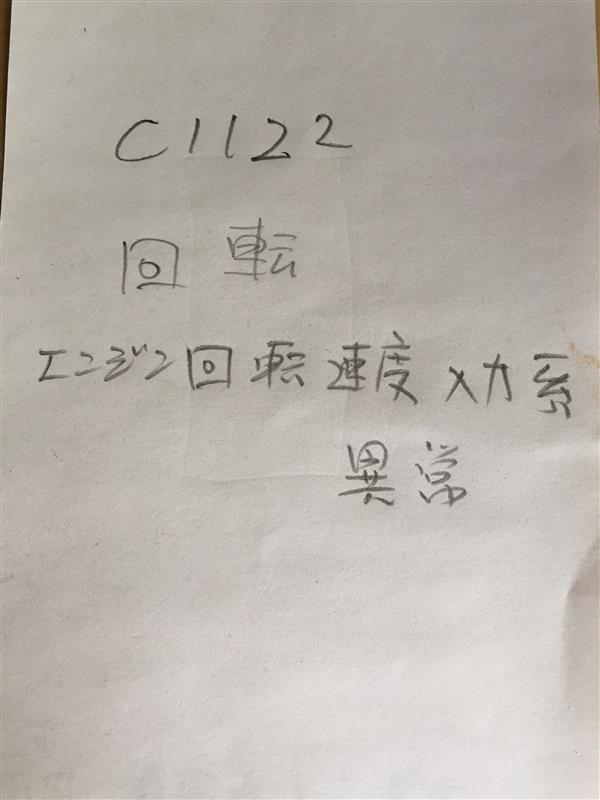 C1122
回転
エンジン回転速度入力系
異常